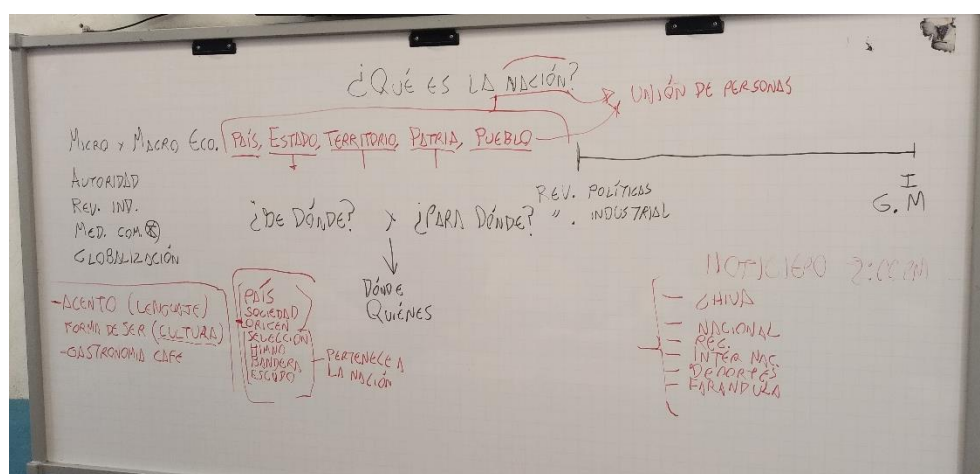 ¿QUÉ ES LA NACIÓN?
UNIÓN DE PERSONAS
MICRO Y MACRO ECO. PAÍS, ESTADO, TERRITORIO, PATRIA, PUEBLO
AUTORIDAD
REV. IND.
MED. COM.
GLOBALIZACIÓN
¿DE DÓNDE? Y ¿PARA DÓNDE?
REV. POLÍTICAS
" . INDUSTRIAL
I
G.M
DÓNDE
QUIÉNES
-ACENTO (LENGUAJE)
FORMA DE SER (CULTURA)
-GASTRONOMIA CAFE
PAÍS
SOCIEDAD
ORIGEN
SELECCIÓN
HIMNO
BANDERA
ESCUDO
- PERTENECE A
LA NACIÓN
NOTICIERO 2:00PM
- CHIVA
- NACIONAL
- REG.
- INTERNAC.
- DEPORTES
- FARANDULA